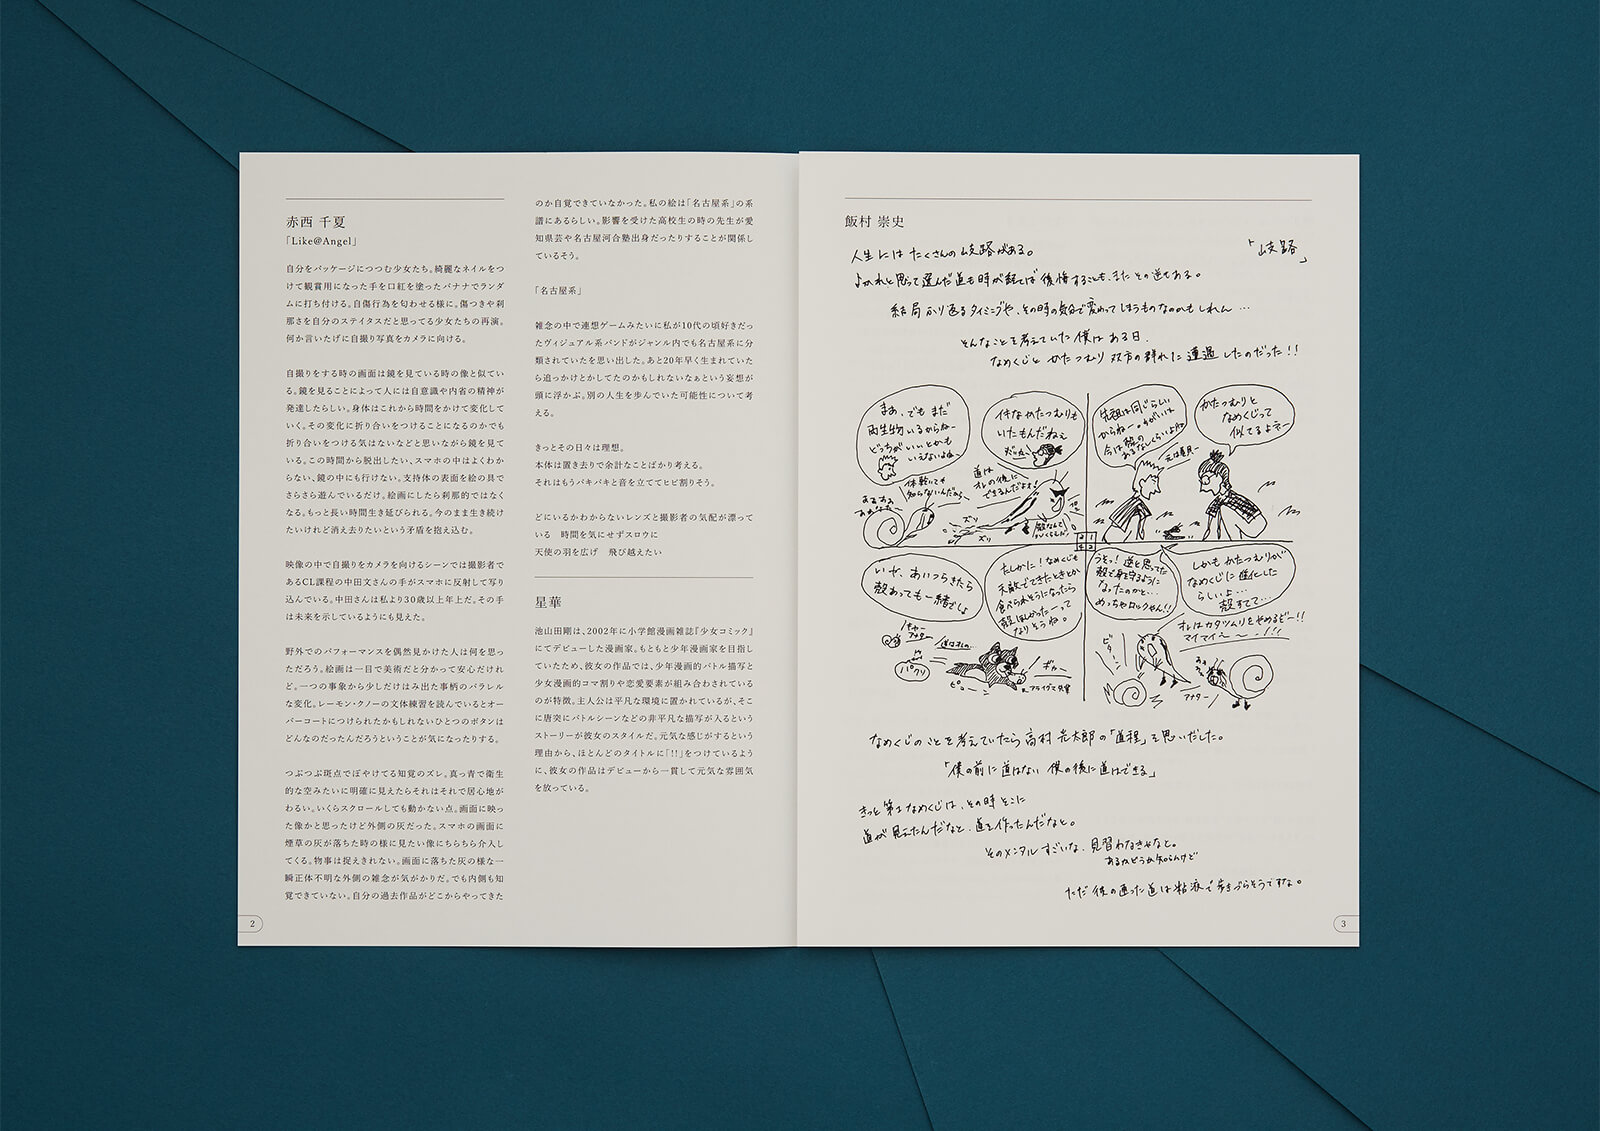 赤西 千夏
「Like@Angel」
自分をパッケージにつつむ少女たち。綺麗なネイルをつ
けて観賞用になった手を口紅を塗ったバナナでランダ
ムに打ち付ける。自傷行為を匂わせる様に。傷つきや刹
那さを自分のステイタスだと思ってる少女たちの再演。
何か言いたげに自撮り写真をカメラに向ける。
自撮りをする時の画面は鏡を見ている時の像と似てい
る。鏡を見ることによって人には自意識や内省の精神が
発達したらしい。身体はこれから時間をかけて変化して
いく。その変化に折り合いをつけることになるのかでも
折り合いをつける気はないなどと思いながら鏡を見て
いる。この時間から脱出したい、スマホの中はよくわか
らない、鏡の中にも行けない。支持体の表面を絵の具で
さらさら遊んでいるだけ。絵画にしたら刹那的ではなく
なる。もっと長い時間生き延びられる。今のまま生き続け
たいけれど消え去りたいという矛盾を抱え込む。
映像の中で自撮りをカメラを向けるシーンでは撮影者で
あるCL課程の中田文さんの手がスマホに反射して写り
込んでいる。中田さんは私より30歳以上年上だ。その手
は未来を示しているようにも見えた。
野外でのパフォーマンスを偶然見かけた人は何を思っ
ただろう。絵画は一目で美術だと分かって安心だけれ
ど。一つの事象から少しだけはみ出た事柄のパラレル
な変化。レーモン・クノーの文体練習を読んでいるとオー
バーコートにつけられたかもしれないひとつのボタンは
どんなのだったんだろうということが気になったりする。
つぶつぶ斑点でぼやけてる知覚のズレ。真っ青で衛生
的な空みたいに明確に見えたらそれはそれで居心地が
わるい。いくらスクロールしても動かない点。画面に映っ
た像かと思ったけど外側の灰だった。スマホの画面に
煙草の灰が落ちた時の様に見たい像にちらちら介入し
てくる。物事は捉えきれない。画面に落ちた灰の様な一
瞬正体不明な外側の雑念が気がかりだ。でも内側も知
覚できていない。自分の過去作品がどこからやってきた
のか自覚できていなかった。私の絵は「名古屋系」の系
譜にあるらしい。影響を受けた高校生の時の先生が愛
知県芸や名古屋河合塾出身だったりすることが関係し
ているそう。
「名古屋系」
雑念の中で連想ゲームみたいに私が10代の頃好きだっ
たヴィジュアル系バンドがジャンル内でも名古屋系に分
類されていたを思い出した。あと20年早く生まれていた
ら追っかけとかしてたのかもしれないなぁという妄想が
頭に浮かぶ。別の人生を歩んでいた可能性について考
える。
きっとその日々は理想。
本体は置き去りで余計なことばかり考える。
それはもうバキバキと音を立ててヒビ割りそう。
どこにいるかわからないレンズと撮影者の気配が漂って
いる　時間を気にせずスロウに
天使の羽を広げ　飛び越えたい
星華
池山田剛は、2002年に小学館漫画雑誌『少女コミック』
にてデビューした漫画家。もともと少年漫画家を目指し
ていたため、彼女の作品では、少年漫画的バトル描写と
少女漫画的コマ割りや恋愛要素が組み合わされている
のが特徴。主人公は平凡な環境に置かれているが、そこ
に唐突にバトルシーンなどの非平凡な描写が入るという
ストーリーが彼女のスタイルだ。元気な感じがするという
理由から、ほとんどのタイトルに「!!」をつけているよう
に、彼女の作品はデビューから一貫して元気な雰囲気
を放っている。
2
飯村 崇史
「岐路」
人生には たくさんの岐路がある。
よかれと思って選んだ道も時が経てば後悔することも、またその逆もある。
結局ふり返るタイミングや、その時の気分で変わってしまうものなのかもしれん…
そんなことを考えていた僕は ある日、
なめくじと かたつむり 双方の群れに 遭遇したのだった!!
かたつむりと
なめくじって
似てるよネー
先祖は同じらしい
からねー。
元は貝…
件なかたつむりも
いたもんだねぇ
まあ、でもまだ
両生物いるからねー
どっちがいいとかも
いえないよねー
道は
オレの後に
できるんだよォ!
ズリ
ズリ
しかもかたつむりが
なめくじに進化した
らしいよ…
殻すてて…
うそっ! 逆と思ってた
殻で身を守るように
なったのかと…
めっちゃロックやん!!
たしかに! なめくじも
天敵でてきたときとか
食べられそうになったら
殻ほしかったーって
なりそうね。
いや、あいつらきたら
殻あっても一緒でしょ
オレはカタツムリをやめるぞー!!
アナター
ギャー
ピューン
パクリ
なめくじのことを考えていたら 高村光太郎の「道程」を思いだした。
「僕の前に道はない 僕の後に道はできる」
きっと第1なめくじは、その時そこに
道が見えたんだなと、道を作ったんだなと。
そのメンタルすごいな、見習わなきゃなと。
あるかどうか知らんけど
ただ 彼の通った道は粘液で歩きづらそうですな。
3